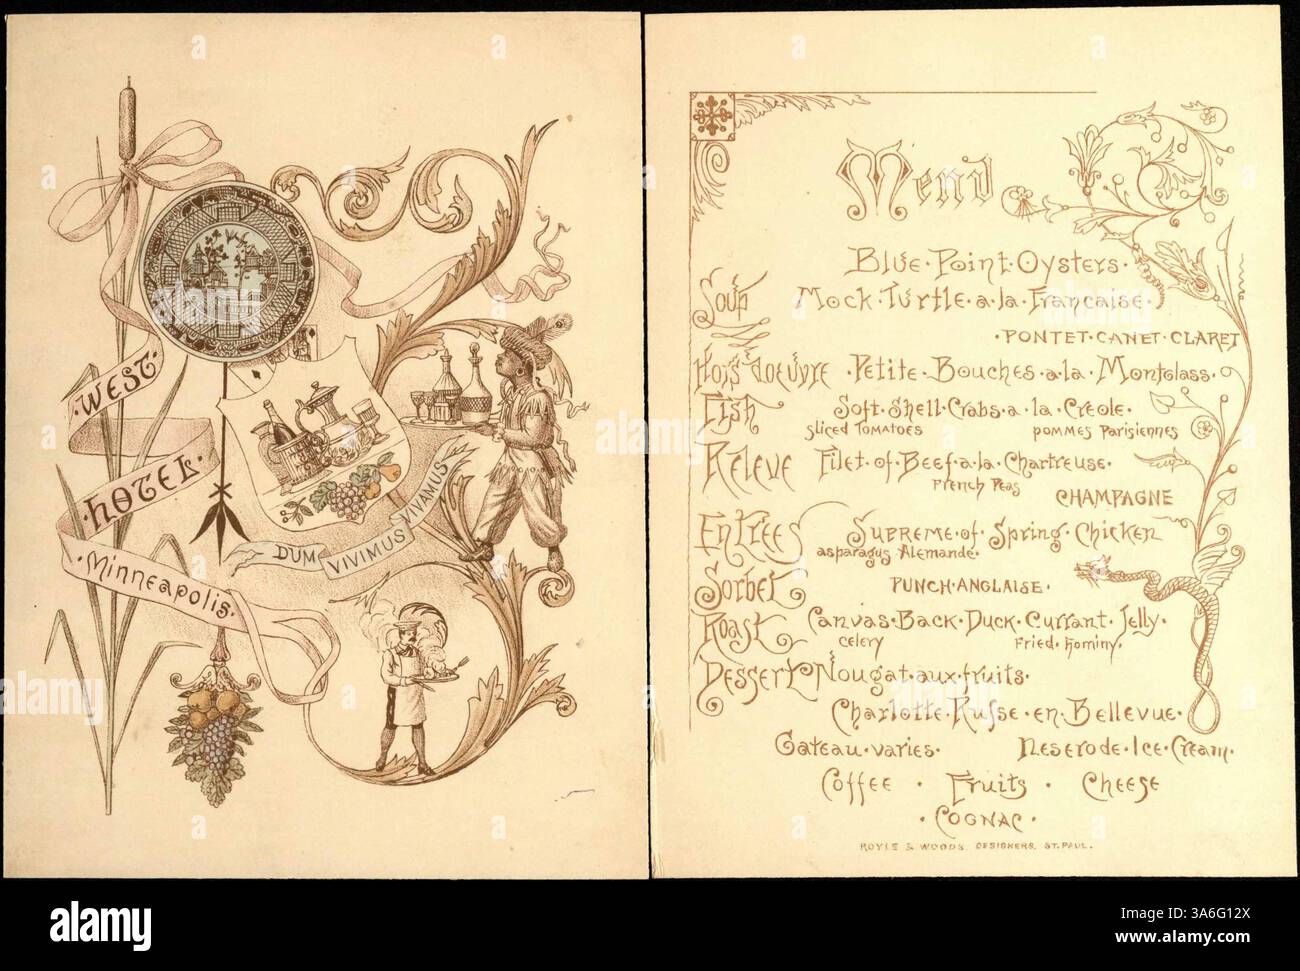 WEST
HOTEL
Minneapolis
DUM VIVIMUS VIVAMUS
Menu
Blue · Point · Oysters ·
Soup Mock · Turtle · a · la · Francaise ·
· PONTET · CANET · CLARET
Hors d'oeuvre · Petite · Bouches · a · la · Montglass ·
Fish Soft · Shell · Crabs · a · la · Creole ·
Sliced Tomatoes Pommes Parisiennes
Releve Filet · of · Beef · a · la · Chartreuse ·
French Peas
CHAMPAGNE
Entrees Supreme · of · Spring · Chicken
asparagus Alemande ·
Sorbet PUNCH · ANGLAISE ·
Roast Canvas · Back · Duck · Currant · Jelly ·
Celery Fried · hominy ·
Dessert Nougat · aux · fruits ·
Charlotte · Russe · en · Bellevue ·
Gateau · varies · Neserode · Ice · Cream ·
Coffee · Fruits · Cheese
· COGNAC ·
ROYLE & WOODS, DESIGNERS, ST. PAUL.
alamy
Image ID: 3A6G12X
www.alamy.com